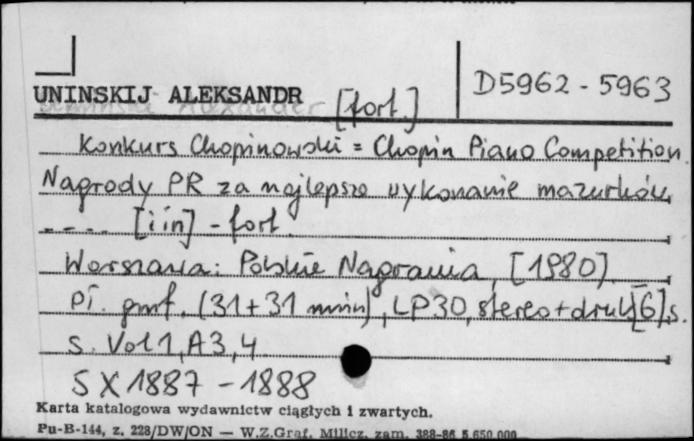 D5962 - 5963
UNINSKIJ ALEKSANDR [fort.]
Konkurs Chopinowski = Chopin Piano Competition.
Nagrody PR za najlepsze wykonanie mazurków
---- [i in] - fort.
Warszawa: Polskie Nagrania, [1980]
Pł. gmf. (31+31 min), LP30, stereo + druk [6] s.
s. Vol 1, A3, 4
S X 1887 - 1888
Karta katalogowa wydawnictw ciągłych i zwartych.
Pu-B-144, z. 228/DW/ON — W.Z.Graf. Milicz, zam. 388-86 5.650.000